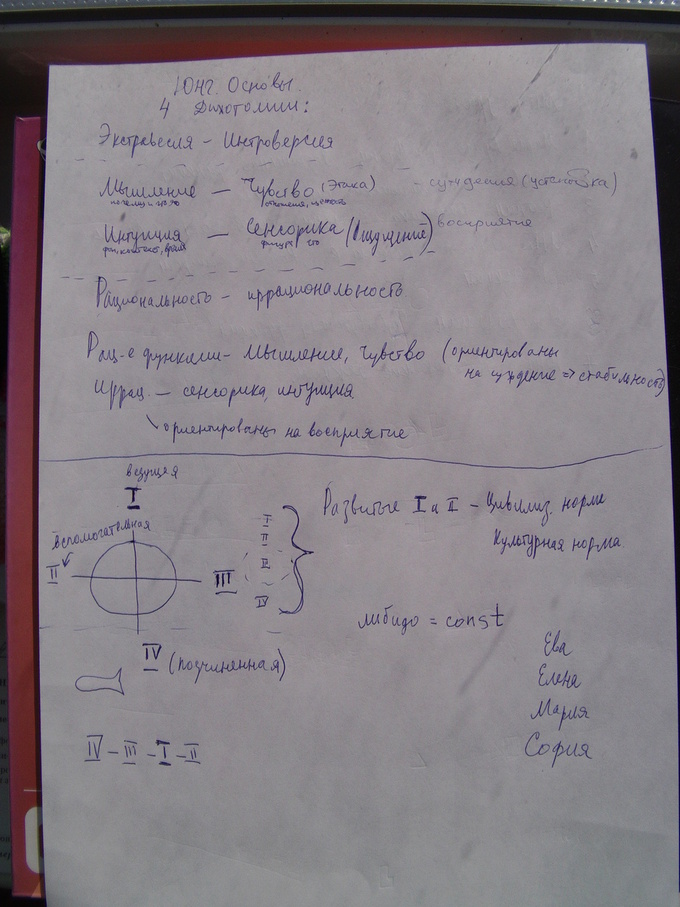 ЮНГ. Основы.
4 Дихотомии:
Экстраверсия - Интроверсия
Мышление - Чувство (Этика) - суждения (установка)
почему и что отношения, ценность
Интуиция - Сенсорика (Ощущение) восприятие
фон, контекст, время фигура
Рациональность - иррациональность
Рац-е функции - Мышление, Чувство (ориентированы
на суждение => стабильность)
Иррац. - сенсорика, интуиция
ориентированы на восприятие
ведущая
I
вспомогательная
II
III
I
II
III
IV
Развитые I и II - Цивилиз. норма
Культурная норма.
либидо = const
IV (подчиненная)
Ева
Елена
Мария
София
IV - III - I - II